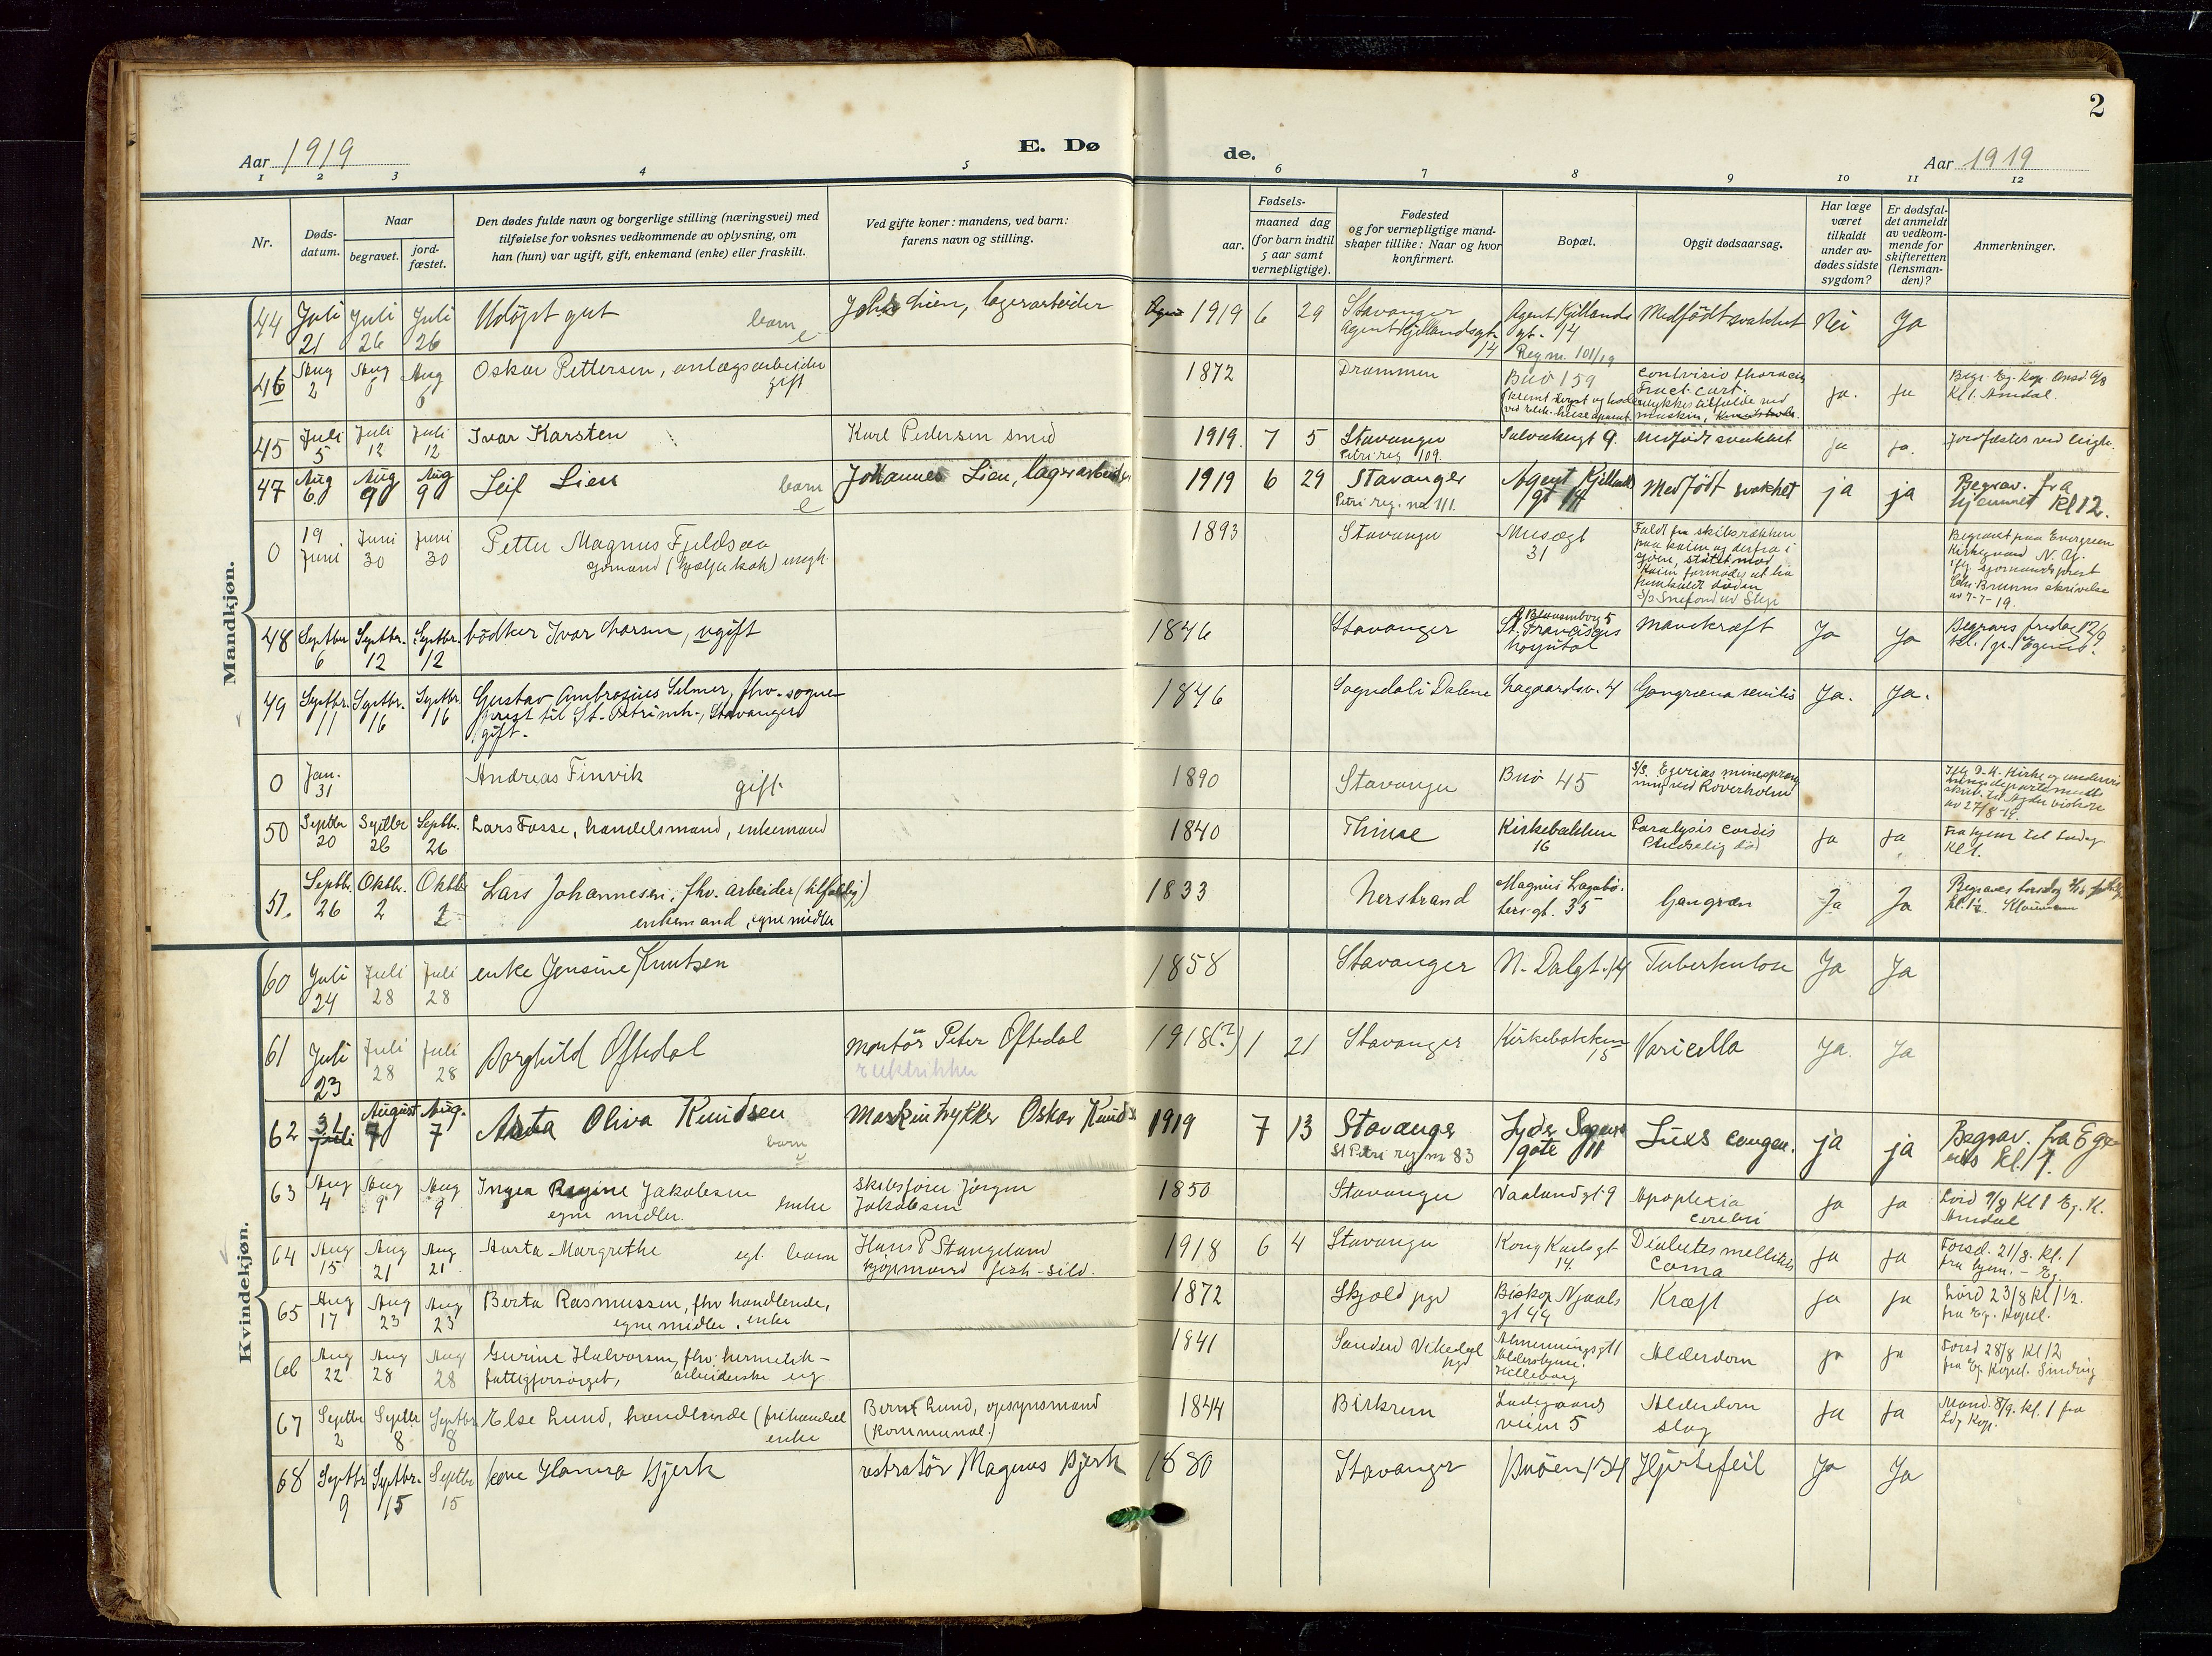 2
Aar 1919
E. Dø
de.
Aar 1919
1 2 3 4 5 6 7 8 9 10 11 12
Nr.
Døds-
datum.
Naar
begravet.
jord-
fæstet.
Den dødes fulde navn og borgerlige stilling (næringsvei) med
tilføielse for voksnes vedkommende av oplysning, om
han (hun) var ugift, gift, enkemand (enke) eller fraskilt.
Ved gifte koner: mandens, ved barn:
farens navn og stilling.
Fødsels-
aar.
maaned dag
(for barn indtil
5 aar samt
vernepligtige).
Fødested
og for vernepligtige mand-
skaper tillike: Naar og hvor
konfirmert.
Bopæl.
Opgit dødsaarsag.
Har læge
været
tilkaldt
under av-
dødes sidste
sygdom?
Er dødsfal-
det anmeldt
av vedkom-
mende for
skifteretten
(lensman-
den)?
Anmerkninger.
Mandkjøn.
44 Juli 21 Juli 26 Juli 26 Udöpt gut barn e Lien, lagerarbeider 1919 6 29 Stavanger Agent Kjellandsgt. 14 Agent Kjellands gt. 14 Medfödt svakhet Nei Ja
Reg nr. 101/19
46 Aug 2 Aug 6 Aug 6 Oskar Pettersen, anlægsarbeider gift 1872 Drammen Buö 159 Fract. cart. ja. ja Kl 1. Amdal.
45 Juli 5 Juli 12 Juli 12 Ivar Karsten Karl Pedersen smed 1919. 7 5 Stavanger Petri reg 109. 9. Medfödt svakhet ja ja. Jordfæstes ved
47 Aug 6 Aug 9 Aug 9 Leif Lien barn e Johannes Lien, lagerarbeider 1919 6 29 Stavanger Petri reg. no 111. Agent Kjelland gt 14 Medfödt svakhet ja ja Begrav. fra hjemmet Kl 12.
0 19 Juni Juni 30 Juni 30 Petter Magnus Fjeldsaa sjømand ugift. 1893 Stavanger Musægt 31 Faldt fra skibsrækken paa kaien og derfra i sjöen, stötet mod kaien formodes at ha Begravet paa Evergreen Kirkegaard N. Y. ifg. sjømandsprest Chr. Bruuns skrivelse av 7-7-19.
48 Septbr 6 Septbr. 12 Septbr. 12 bödker Ivar Larsen, ugift 1846 Stavanger St. Franciskus hospital Mavekræft Ja Ja Begraves fredag 12/9 kl. 1
49 Septbr. 11 Septbr. 16 Septbr. 16 Gustav Ambrosius Selmer, fhv. sogne-
prest til St. Petri mh., Stavanger
gift.
1846 Sogndal i Dalene Lagaardsv. 4 Gangræna senilis Ja. Ja.
0 Jan. 31 Andreas Finvik gift. 1890 Stavanger Buö 45 S/S. Egerias minespræng
ning ved Roverholm
av 27/8-19.
50 Septbr 20 Septbr 26 Septbr. 26 Lars Fosse, handelsmand, enkemand 1840 Kirkebakken 16 Paralysis cordis Pludselig död ja ja Fra hjem til
Kl 1.
51. Septbr. 26 Oktbr. 2 Oktbr 2 Lars Johannesen, fhv. arbeider (tilfældig)
enkemand, egne midler 1833 Nerstrand Magnus Lagabö-
tersgt. 35 Gangræn Ja Ja Begraves torsdag
Kvindekjøn.
60 Juli 24 Juli 28 Juli 28 enke Jensine Knutsen 1858 Stavanger N. Dalgt. 14 Tuberkulose Ja Ja
61 Juli 23 Juli 28 Juli 28 Borghild Oftedal montör Peter Oftedal
elektriker
1918(?) 1 21 Stavanger Kirkebakken 15 Varicella Ja. Ja
62 31 Juli August 7 Aug. 7 Oliva Knudsen barn Maskintrykker Oskar Knudsen 1919 7 13 Stavanger St Petri reg nr 83 Lyder Sagens gate 11 Lues congen. ja ja Begrav. fra Ege-
nes kl. 1.
63 Aug 4 Aug 9 Aug 9 Inger Regine Jakobsen
egne midler. enke Skibsförer Jörgen
Jakobsen 1850 Stavanger Vaalandgt 9 Apoplexia
cerebri ja ja Lörd 9/8 Kl 1 Eg. K.
Amdal
64 Aug 15 Aug 21 Aug 21 Marta Margrethe egt. barn Hans P Stangeland
kjöpmand fisk-sild. 1918 6 4 Stavanger Kong Karlsgt
14. Diabetes mellitus
Coma ja ja Torsd. 21/8. kl. 1
fra hjem. - Eg.
65 Aug 17 Aug 23 Aug 23 Berta Rasmussen, fhv handlende,
egne midler, enke 1872 Skjold pgd Biskop Njaals
gt 44 Kræft ja ja Lörd 23/8 kl 1½.
fra Eg. Kapel.
66 Aug 22 Aug 28 Aug 28 Gurine Halvorsen, fhv. hermetik-
fattigforsörget, arbeiderske ug 1841 Sandeid Vikedal
pgd Almenningsgt 1
Aldershjem Alderdom ja ja Torsd 28/8 Kl 12
fra Eg Kapel.
67 Septbr 2 Septbr 8 Septbr 8 Else Lund, handlende (frihandel
enke Bernt Lund, opsynsmand
(Kommunal.) 1844 Birkrem Ladegaards
veien 5 Alderdom
slag Ja Ja Mand. 8/9. kl. 1 fra
Ldg Kap.
68 Septbr 9 Septbr. 15 Septbr 15 kone Hanna Bjerk Magnus Bjerk 1880 Stavanger Buöen 134 Hjertefeil Ja Ja